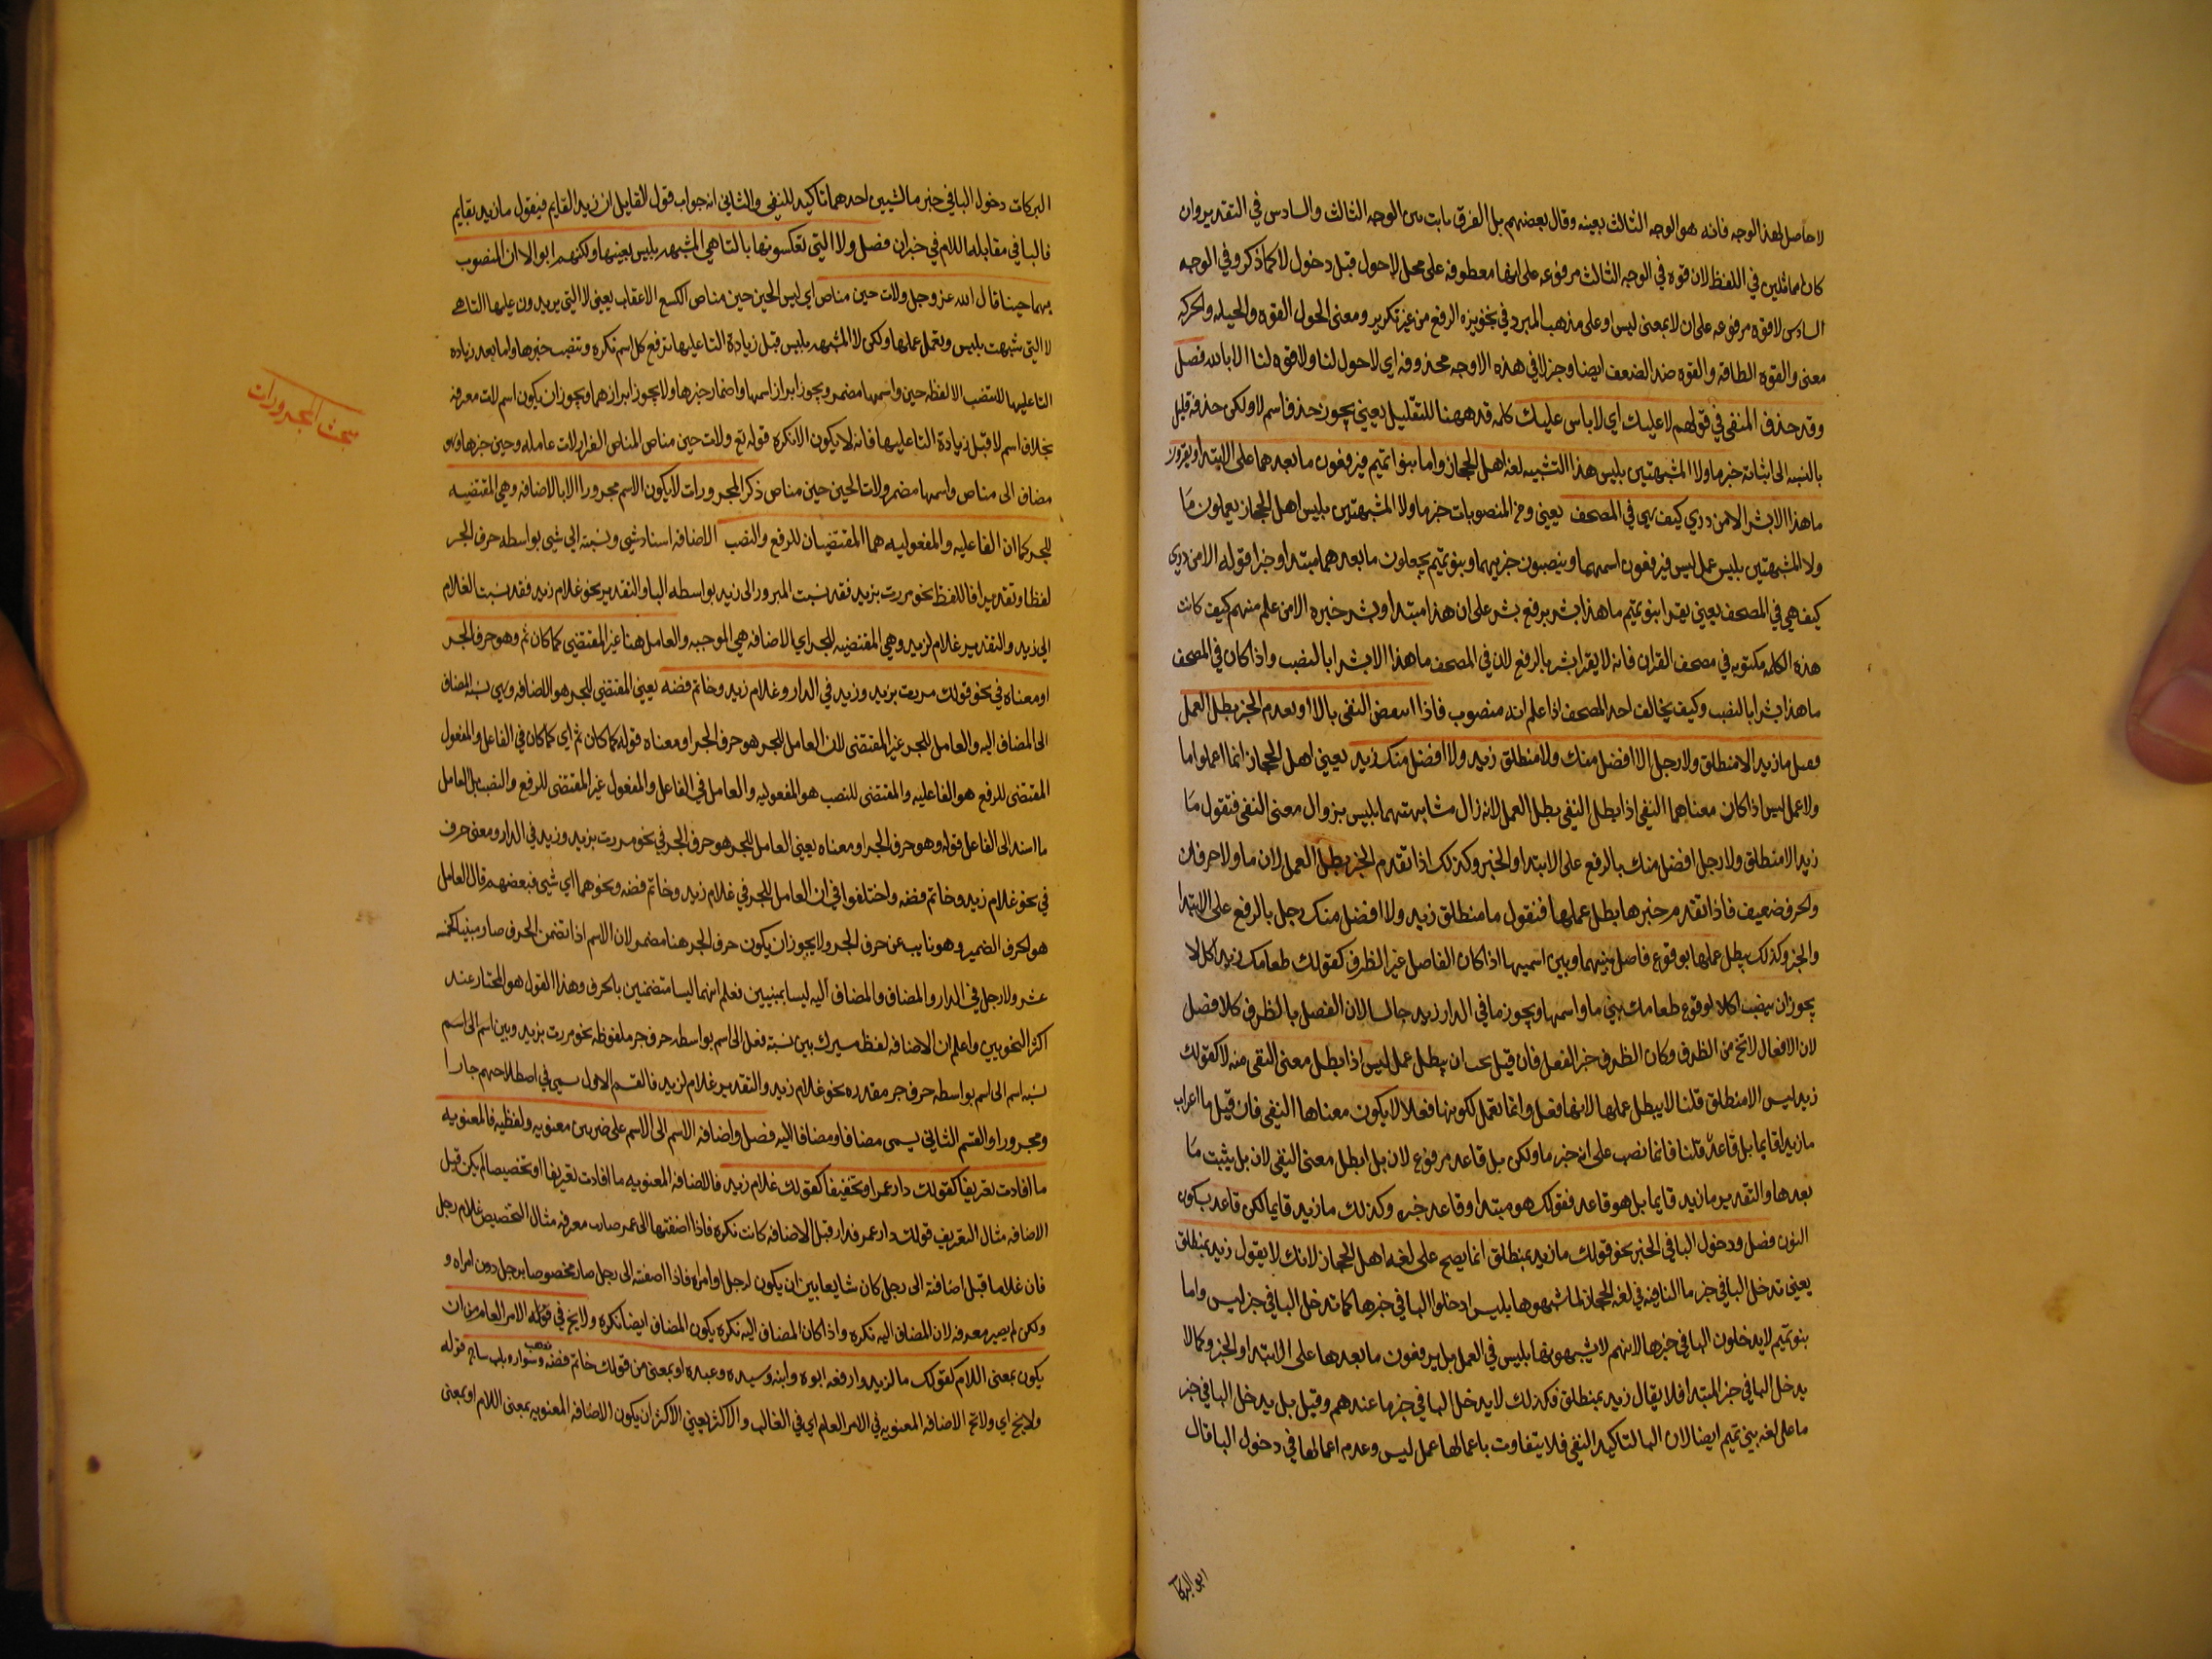 لا حاصل لهذا الوجه فانه هو الوجه الثالث بعينه وقال بعضهم بل الفرق ثابت بين الوجه الثالث والسادس في التقدير وان
كانا مماثلين في اللفظ لان قوه في الوجه الثالث مرفوعه على انها معطوفه على محل لاحول قبل دخول لا كما ذكر وفي الوجه
السادس لا قوه مرفوعه على ان لا بمعنى ليس او على مذهب المبرد في تجويزه الرفع من غير تكرير ومعنى الحول القوه والحيله والحركه
معنى والقوه الطاقه والقوه ضد الضعف ايضا وخبر لا في هذه الاوجه محذوفه اي لا حول لنا ولا قوه لنا الا بالله فصل
وقد حذف المنفى في قولهم لا عليك اي لا باس عليك كلمه قد ههنا للتقليل يعني يجوز حذف اسم لا ولكن حذفه قليل
بالنسبه الى اثباته خبر ما ولا المشبهتين بليس هذا التشبيه لغه اهل الحجاز واما بنوا تميم فيرفعون ما بعدهما على الابتداء ويقرون
ما هذا الا بشر الا من دري كيف هي في المصحف يعني ومن المنصوبات خبر ما ولا المشبهتين بليس اهل الحجاز يعملون ما
ولا المشبهتين بليس عمل ليس فيرفعون اسمهما وينصبون خبريهما وبنو تميم يجعلون ما بعدهما مبتدا وخبرا قوله الا من دري
كيف هي في المصحف يعني يقرا بنو تميم ما هذا بشر برفع بشر على ان هذا مبتدا وبشر خبره الا من علم منهم كيف كانت
هذه الكلمه مكتوبه في مصحف القران فانه لا يقرا بشر بالرفع لان في المصحف ما هذا الا بشرا بالنصب واذا كان في المصحف
ما هذا بشرا بالنصب وكيف يخالف احد المصحف اذا علم انه منصوب فاذا انتقض النفى بالا او تقدم الخبر بطل العمل
فقيل ما زيد الا منطلق ولا رجل الا افضل منك ولا منطلق زيد ولا افضل منك زيد يعني اهل الحجاز انما اعملوا ما
ولا عمل ليس اذا كان معناهما النفي اذا بطل النفي بطل العمل لانه زال مشابهتهما بليس بزوال معنى النفى فتقول ما
زيد الا منطلق ولا رجل افضل منك بالرفع على الابتدا والخبر وكذلك اذا تقدم الخبر بطل العمل لان ما ولا حرفان
والحرف ضعيف فاذا تقدم خبرها بطل عملها فنقول ما منطلق زيد ولا افضل منك رجل بالرفع على الابتدا
والخبر وكذلك يبطل عملها بوقوع فاصل بينهما وبين اسميها اذا كان الفاصل غير الظرف كقولك طعامك زيد اكل لا
يجوز ان ينصب اكلا لوقوع طعامك بين ما واسمها ويجوز ما في الدار زيد جالسا لان الفصل بالظرف كلا فصل
لان الافعال لا تخ من الظرف وكان الظرف جزا الفعل فان قيل يجب ان يبطل عمل ليس اذا بطل معنى النفى منه لا كقولك
زيد ليس الا منطلق قلنا لا يبطل عملها لانها فعل وانما تعمل لكونها فعلا لا يكون معناها النفى فان قيل ما اعراب
ما زيد قايما بل قاعد قلنا قايما نصب على انه خبر ما ولكن بل قاعد مرفوع لان بل ابطل معنى النفى لان بل يثبت ما
بعدها والتقدير ما زيد قايما بل هو قاعد فقولك هو مبتدا وقاعد خبره وكذلك ما زيد قايما لكن قاعد بكون
النون فصل ودخول البا في الخبر نحو قولك ما زيد بمنطلق انما يصح على لغه اهل الحجاز لانك لا تقول زيد بمنطلق
يعني تدخل البا في خبر ما النافيه في لغه الحجاز لما شبهوها بليس ادخلوا البا في خبرها كما تدخل البا في خبر ليس واما
بنو تميم لا يدخلون البا في خبرها لانهم لا يشبهونها بليس في العمل بل يرفعون ما بعدها على الابتدا والخبر وكما لا
يدخل البا في خبر المبتدا فلا يقال زيد بمنطلق فكذلك لا يدخل البا في خبرها عندهم وقيل بل يدخل البا في خبر
ما على لغه بني تميم ايضا لان البا لتاكيد النفى فلا يتفاوت باعمالها عمل ليس وعدم اعمالها في دخول البا قال
ابو البركات
البركات دخول البا في خبر ما لشيين احدهما تاكيد للنفى والثاني انه جواب قول القايل ان زيد القايم فيقول ما زيد بقايم
فالبا في مقابله اللام في خبر ان فصل ولا التي تكسونها بالتا هي المشبهه بليس بعينها ولكنهم ابوا الا ان المنصوب
بهما حينا قال الله عز وجل ولات حين مناص اي ليس الحين حين مناص يعني لا التي يزيدون عليها التا هي
لا التي شبهت بليس وتعمل عملها ولكن لا المشبهه بليس قبل زياده التا عليها ترفع كل اسم نكره وتنصب خبرها واما بعد زياده
التا عليها لا تنتصب الا لفظه حين واسمها مضمر ويجوز ابراز اسمها واضمار خبرها ولا يجوز ابرازهما ويجوز ان يكون اسم لات معرفه
بخلاف اسم لا قبل زيادة التا عليها فانه لا يكون الا نكره قوله تع ولات حين مناص المناص الفرار لات عامله وحين خبرها وهو
مضاف الى مناص واسمها مضمر ولات الحين حين مناص ذكر المجرورات لا يكون الاسم مجرورا الا بالاضافه وهي المقتضيه
للجر كما ان الفاعليه والمفعوليه هما المقتضيان للرفع والنصب الاضافه اسناد شيى ونسبته الى شيى بواسطه حرف الجر
لفظا او تقديرا فاللفظ نحو مررت بزيد فقد نسبت المرور الى زيد بواسطه البا والتقدير نحو غلام زيد فقد نسبت الغلام
الى زيد والتقدير غلام لزيد وهي المقتضيه للجر اي الاضافه هي الموجبه والعامل هنا غير المقتضى كما كان ثم وهو حرف الجر
او معناه في نحو قولك مررت بزيد وزيد في الدار وغلام زيد وخاتم فضه يعني المقتضي للجر هو الاضافه وهي نسبه المضاف
الى المضاف اليه والعامل للجر غير المقتضى لان العامل للجر هو حرف الجر او معناه قوله كما كان ثم اي كما كان في الفاعل والمفعول
المقتضى للرفع هو الفاعليه والمقتضى للنصب هو المفعوليه والعامل في الفاعل والمفعول غير المقتضى للرفع والنصب بل العامل
ما اسند الى الفاعل قوله وهو حرف الجر او معناه يعني العامل للجر هو حرف الجر في نحو مررت بزيد وزيد في الدار ومعنى حرف
في نحو غلام زيد وخاتم فضه واختلفوا في ان العامل للجر في غلام زيد وخاتم فضه ونحوهما اي شيى فبعضهم قال العامل
هو الحرف الضمير وهو نايب عن حرف الجر ولا يجوز ان يكون حرف الجر هنا مضمر لان الاسم اذا تضمن الحرف صار مبنيا كخمسه
عشر ولا رجل في الدار والمضاف والمضاف اليه ليسا بمبنيين فعلم انهما ليسا متضمنين بالحرف وهذا القول هو المختار عند
اكثر النحويين واعلم ان الاضافه لفظ مشترك بين نسبة فعل الى اسم بواسطه حرف جر ملفوظه نحو مررت بزيد وبين اسم الى اسم
نسبه اسم الى اسم بواسطه حرف جر مقدره نحو غلام زيد والتقدير غلام لزيد فالقسم الاول سمى في اصطلاحهم جارا
ومجرورا والقسم الثاني يسمى مضافا ومضافا اليه فصل واضافه الاسم الى الاسم على ضربين معنويه ولفظيه فالمعنويه
ما افادت تعريفا كقولك دار عمرا وتخفيفا كقولك غلام زيد فالاضافه المعنويه ما افادت تعريفا او تخصيصا لم يكن قبل
الاضافه مثال التعريف قولك دار عمر فدار قبل الاضافه كانت نكره فاذا اضفتها الى عمر صارت معرفه مثال التخصيص غلام رجل
فان غلاما قبل اضافته الى رجل كان شايعا بين ان يكون لرجل او امراه فاذا اضفته الى رجل صار مخصوصا برجل دون امراه و
ولكن لم يصير معرفه لان المضاف اليه نكره واذا كان المضاف اليه نكره يكون المضاف ايضا نكره ولا يخ في قوله الامر العام من ان
يكون بمعنى اللام كقولك مال زيد وارضه ابوه وابنه وسيده وعبده او بمعنى من قولك خاتم فضه وسوار ذهب وباب ساج قوله
ولا يخ اي ولا تخ الاضافه المعنويه في الامر العام اي في الغالب والاكثر يعني الاكثر ان يكون الاضافه المعنويه بمعنى اللام او بمعنى
بحث المجرورات